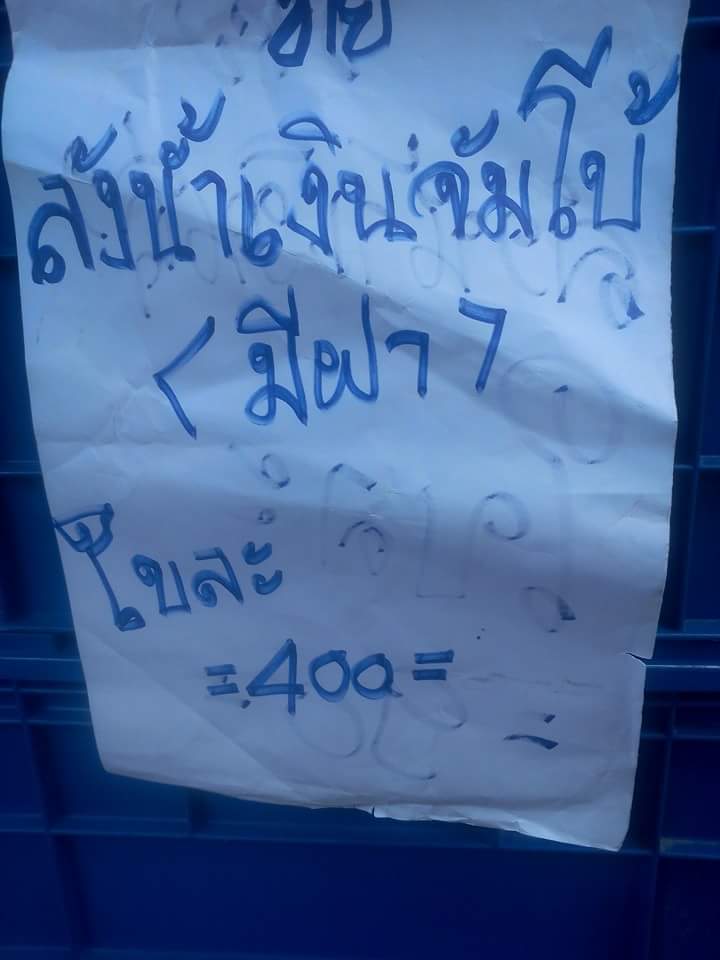 ขาย
ลังน้ำเงินจัมโบ้
(มีฝา)
ใบละ
=400=